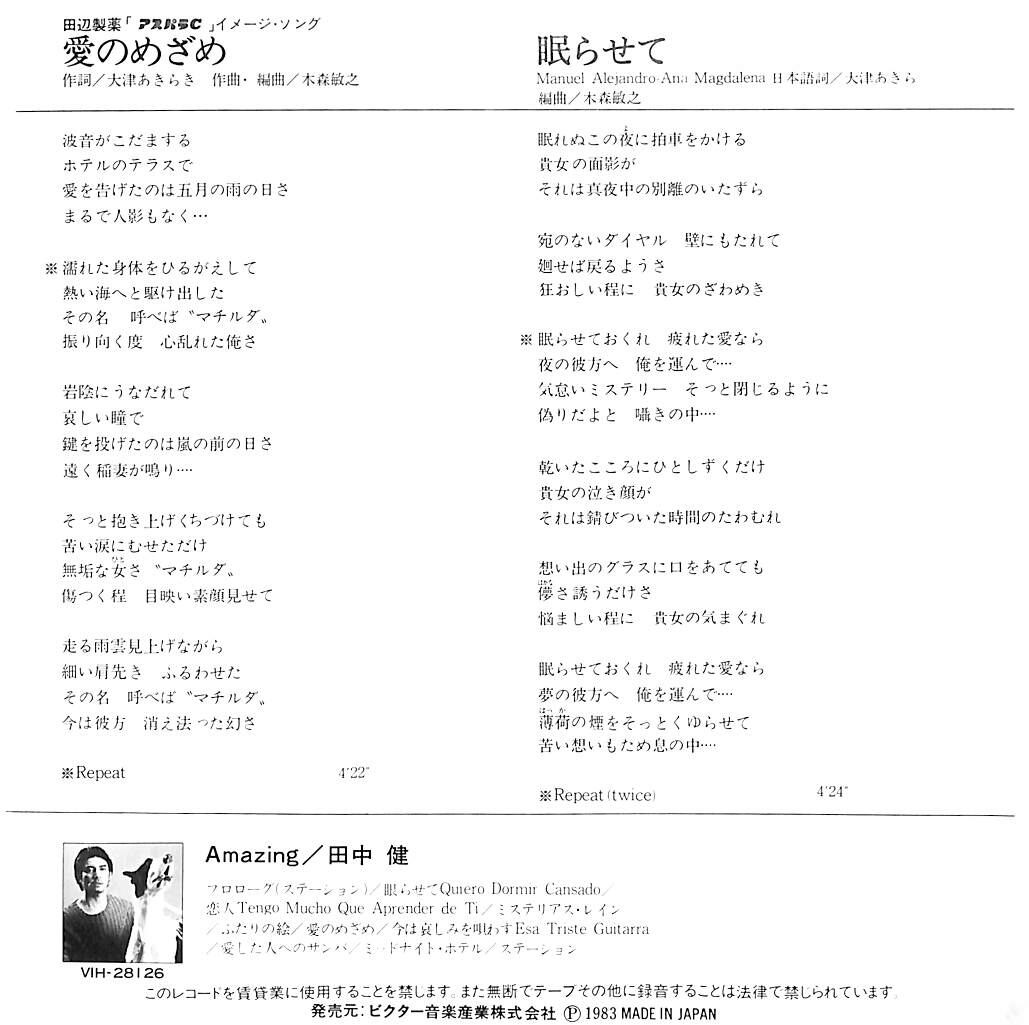 田辺製薬「アスパラC」イメージ・ソング
愛のめざめ
作詞／大津あきらき　作曲・編曲／木森敏之
波音がこだまする
ホテルのテラスで
愛を告げたのは五月の雨の日さ
まるで人影もなく…
※濡れた身体をひるがえして
熱い海へと駆け出した
その名　呼べば〝マチルダ〟
振り向く度　心乱れた俺さ
岩陰にうなだれて
哀しい瞳で
鍵を投げたのは嵐の前の日さ
遠く稲妻が鳴り‥‥
そっと抱き上げくちづけても
苦い涙にむせただけ
無垢な女さ〝マチルダ〟
ひと
傷つく程　目映い素顔見せて
走る雨雲見上げながら
細い肩先き　ふるわせた
その名　呼べば〝マチルダ〟
今は彼方　消え法った幻さ
※Repeat　4′22″
眠らせて
Manuel Alejandro-Ana Magdalena 日本語詞／大津あきら
編曲／木森敏之
眠れぬこの夜に拍車をかける
よ
貴女の面影が
それは真夜中の別離のいたずら
宛のないダイヤル　壁にもたれて
廻せば戻るようさ
狂おしい程に　貴女のざわめき
※眠らせておくれ　疲れた愛なら
夜の彼方へ　俺を運んで‥‥
気怠いミステリー　そっと閉じるように
偽りだよと　囁きの中‥‥
乾いたこころにひとしずくだけ
貴女の泣き顔が
それは錆びついた時間のたわむれ
想い出のグラスに口をあてても
はかな
儚さ誘うだけさ
悩ましい程に　貴女の気まぐれ
眠らせておくれ　疲れた愛なら
夢の彼方へ　俺を運んで‥‥
はっか
薄荷の煙をそっとくゆらせて
苦い想いもため息の中‥‥
※Repeat (twice)　4′24″
Amazing／田中 健
プロローグ(ステーション)／眠らせてQuiero Dormir Cansado／
恋人Tengo Mucho Que Aprender de Ti／ミステリアス・レイン
／ふたりの絵／愛のめざめ／今は哀しみを唄わすEsa Triste Guitarra
／愛した人へのサンバ／ミッドナイト・ホテル／ステーション
VIH-28126
このレコードを賃貸業に使用することを禁じます。また無断でテープその他に録音することは法律で禁じられています。
発売元：ビクター音楽産業株式会社 Ⓟ 1983 MADE IN JAPAN